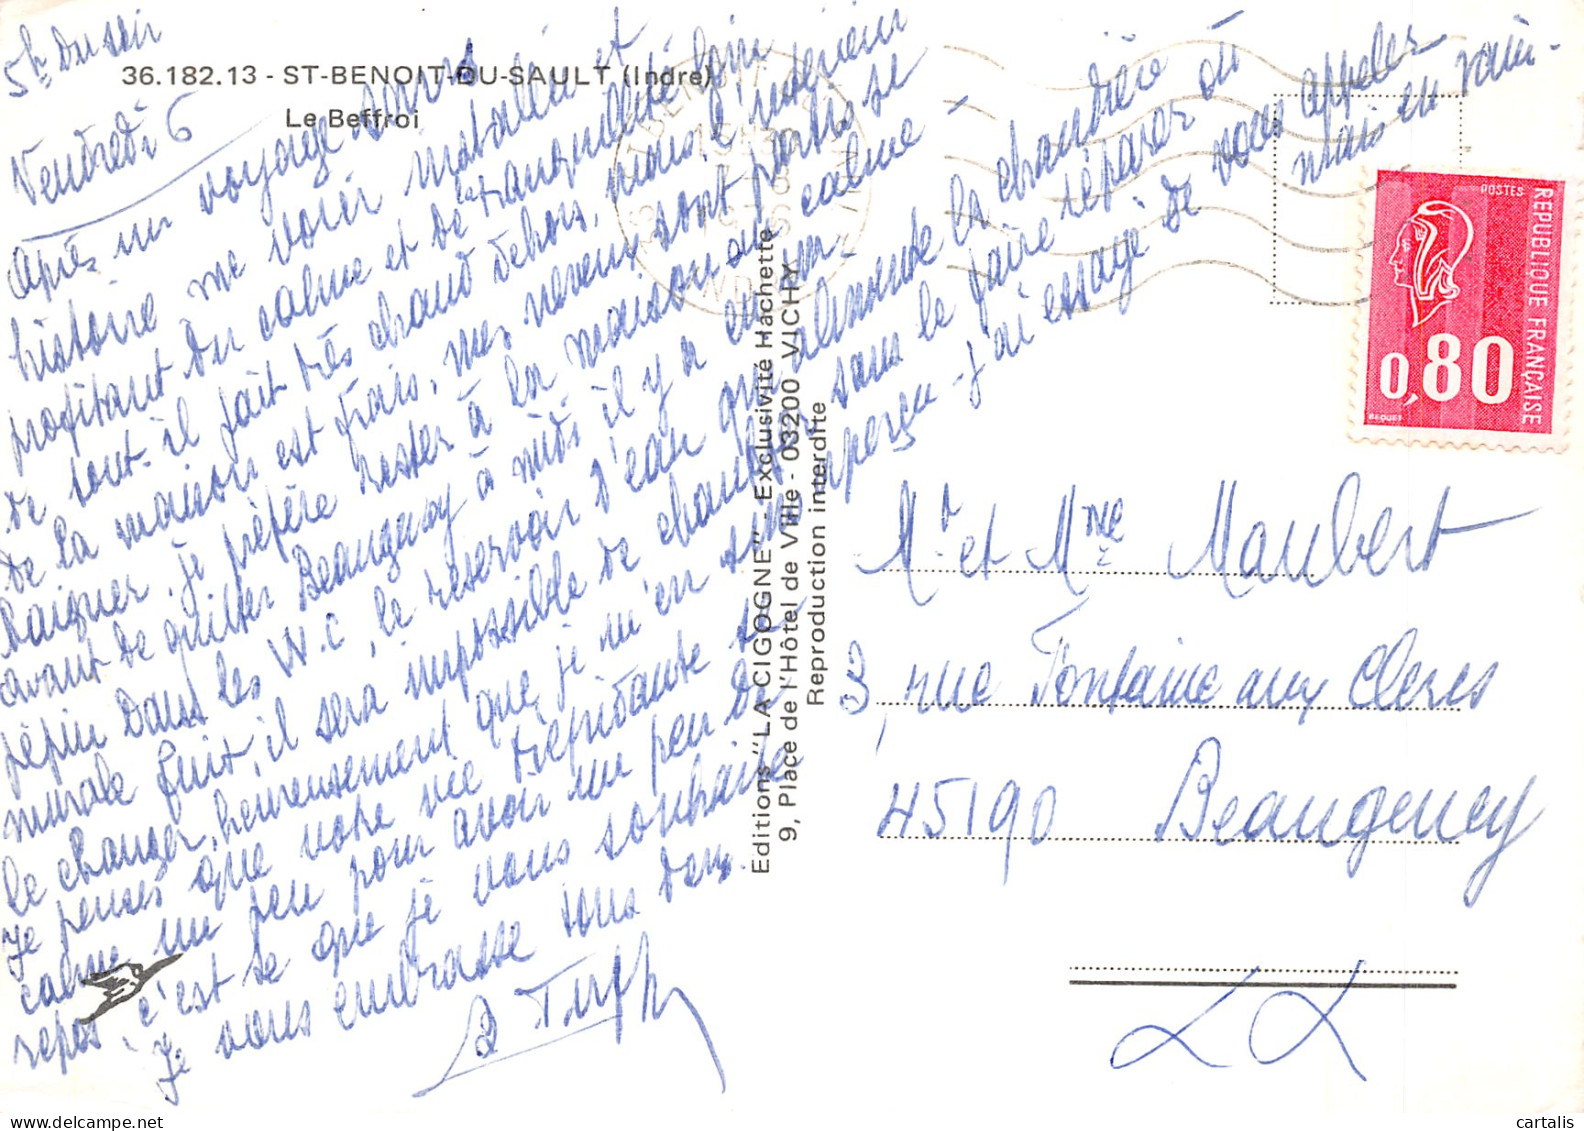 36.182.13 - ST-BENOIT-DU-SAULT (Indre)
Le Beffroi
5h du soir
Vendredi 6
Après un voyage sans
histoire me voici installée et
profitant du calme et de la tranquillité loin
de tout. il fait très chaud dehors, mais l'intérieur
de la maison est frais, mes neveux sont partis se
baigner, je préfère rester à la maison au calme -
avant de quitter Beaugency à midi il y a eu un
pépin dans les W.C, le réservoir d'eau qui alimente la chaudière
murale fuit, il sera impossible de chauffer sans le faire réparer où
le changer, heureusement que je m'en suis aperçu - j'ai essayé de vous appeler
mais en vain -
Je pense que votre vie trépidante se
calme un peu pour avoir un peu de
repos, c'est ce que je vous souhaite
Je vous embrasse tous deux.
Editions "LA CIGOGNE" - Exclusivité Hachette
9, Place de l'Hôtel de Ville - 03200 VICHY
Reproduction interdite
POSTES
REPUBLIQUE FRANÇAISE
0,80
BEQUET
Mr et Mme Maubert
3, rue Fontaine aux Clercs
45190 Beaugency
cartalis.com